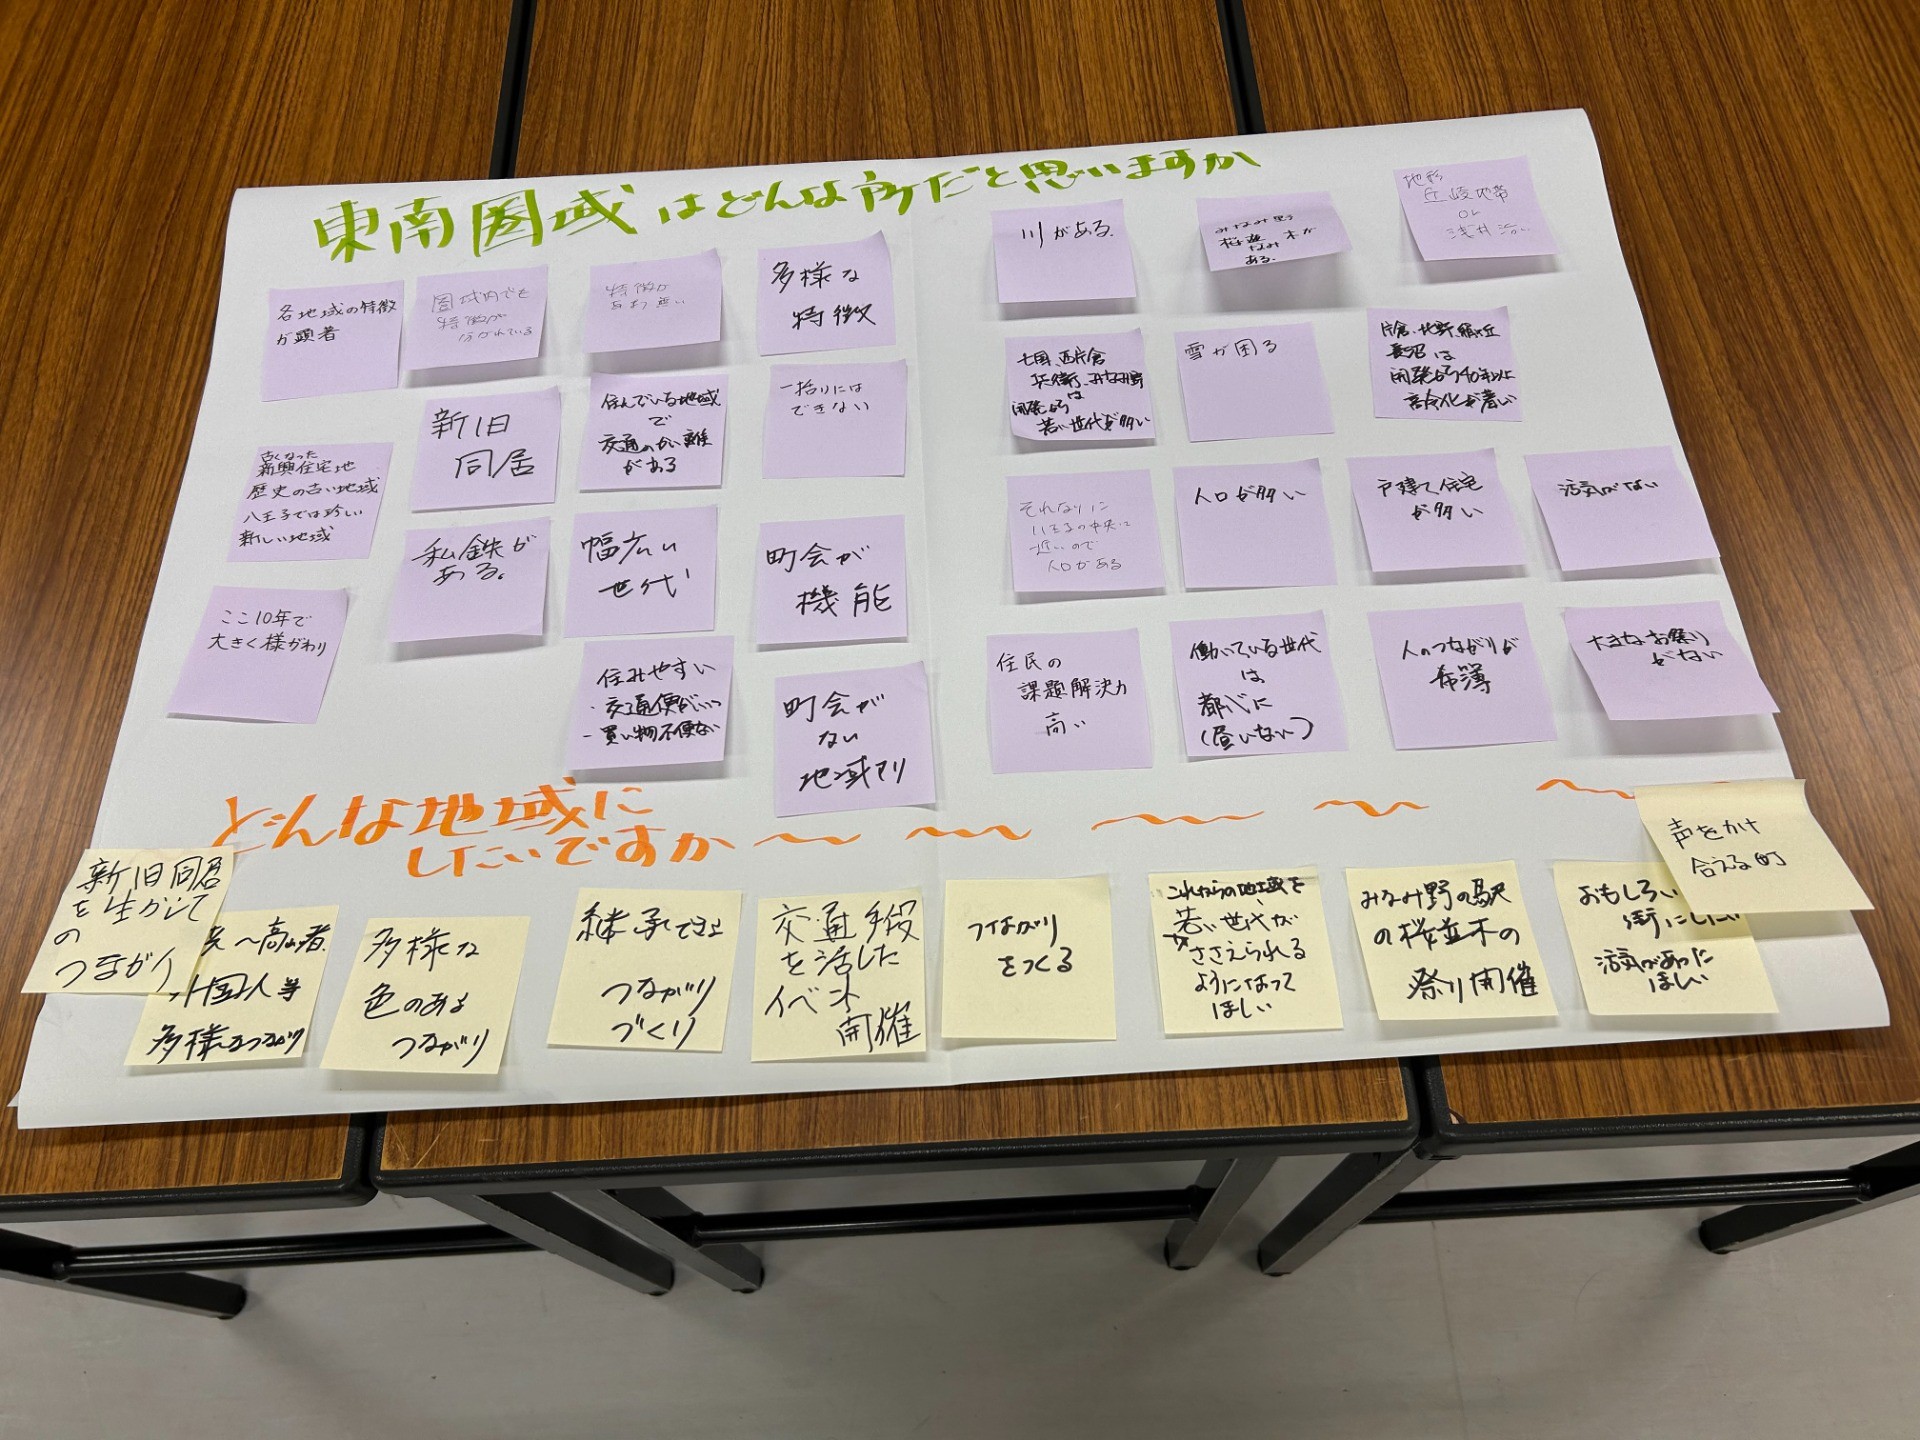 東南圏域はどんな所だと思いますか
各地域の特徴
が顕著
圏域内でも
特徴が
分かれている
特徴が
多様な
特徴
川がある。
みなみ野
桜並木が
ある。
地形
丘陵地帯
or
浅川沿い
新旧
同居
住んでいる地域
で
交通のかい離
がある
一括りには
できない
七国、西片倉
兵衛、みなみ野
は
開発から
若い世代が多い
雪が困る
片倉、北野、絹ヶ丘
長沼は
開発から40年以上
高令化が著い
古くなった
新興住宅地
歴史の古い地域
八王子では珍しい
新しい地域
私鉄が
ある。
幅広い
世代
町会が
機能
それなりに
八王子の中央に
近いので
人口がある
人口が多い
戸建て住宅
が多い
活気がない
ここ10年で
大きく様がわり
住みやすい
・交通便がいい
・買い物不便ない
町会が
ない
地域アリ
住民の
課題解決力
高い
働いている世代
は
都心に
(昼いない)
人のつながりが
希薄
大きなお祭り
がない
どんな地域に
したいですか
新旧同居
を生かして
の
つながり
児〜高齢者
外国人等
多様なつながり
多様な
色のある
つながり
継承できる
つながり
づくり
交通手段
を活した
イベント
開催
つながり
をつくる
これからの地域を
若い世代が
ささえられる
ようになって
ほしい
みなみ野の駅
の桜並木の
祭り開催
おもしろい
街にしたい
活気があった
ほしい
声をかけ
合える町